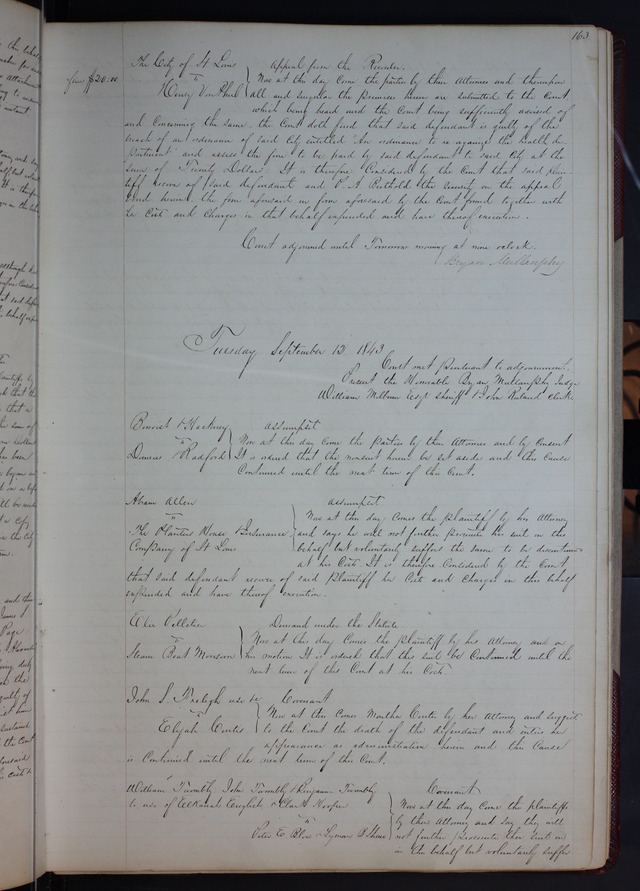 163
The City of St Louis Appeal from the Recorder.
fine $20.00
vs
Now at this day Come the parties by their Attornies and thereupon
Henry Von Phul all and singular the premises herein are submitted to the Court,
which being heard and the Court being sufficiently advised of
and Concerning the same. the Court doth find that said defendant is guilty of the
breach of an ordinance of said City entitled "An ordinance to re organize the health de-
partment" and assess the fine to be paid by said defendant to said City at the
sum of Twenty Dollars. It is therefore Considered by the Court that said Plain-
tiff recover of said defendant and the Security on the appeal
bond herein the fine aforesaid in form aforesaid by the Court found together with
he Costs and Charges in that behalf expended and have thereof execution.
Court adjourned until Tomorrow morning at nine oclock.
Bryan Mullanphy
Tuesday September 12 1843
Court met pursuant to adjournment.
Present the Honorable Bryan Mullanphy Judge
William Milburn Esqr Sheriff & John Ruland clerk.
& Hackney assumpsit
vs
Now at this day come the Parties by their Attornies and by Consent
Radford It is ordered that the nonsuit herein be set aside and this Cause
Continued until the next term of this Court.
Abram Allen assumpsit
vs
Now at this day Comes the plaintiff by his Attorney
The Planters House & Insurance and says he will not further prosecute his suit in this
Company of St Louis behalf but voluntarily suffers the same to be discontinued
at his Costs. It is therefore Considered by the Court
that said defendant recover of said Plaintiff he Costs and Charges in this behalf
expended and have thereof execution.
Pelletier Demand under the Statute
vs
Now at this day Comes the plaintiff by his Attorney and on
Steam Boat Monsoon his motion It is ordered that this suit be Continued until the
next term of this Court at his Costs.
John S. use &c Covenant
vs
Now at this Comes Martha Curtis by her Attorney and suggests
Elijah Curtis to the Court the death of the defendant and enters her
appearance as administratrix herein and this Cause
is Continued until the next term of this Court.
William Twombly John Twombly & Benjamin Twombly Covenant
to use of English & Clark Hooper
Now at this day Come the plaintiffs
vs
by their Attorney and say they will
Peter E. Blow & Lyman not further prosecute their suit in
in this behalf but voluntarily suffer